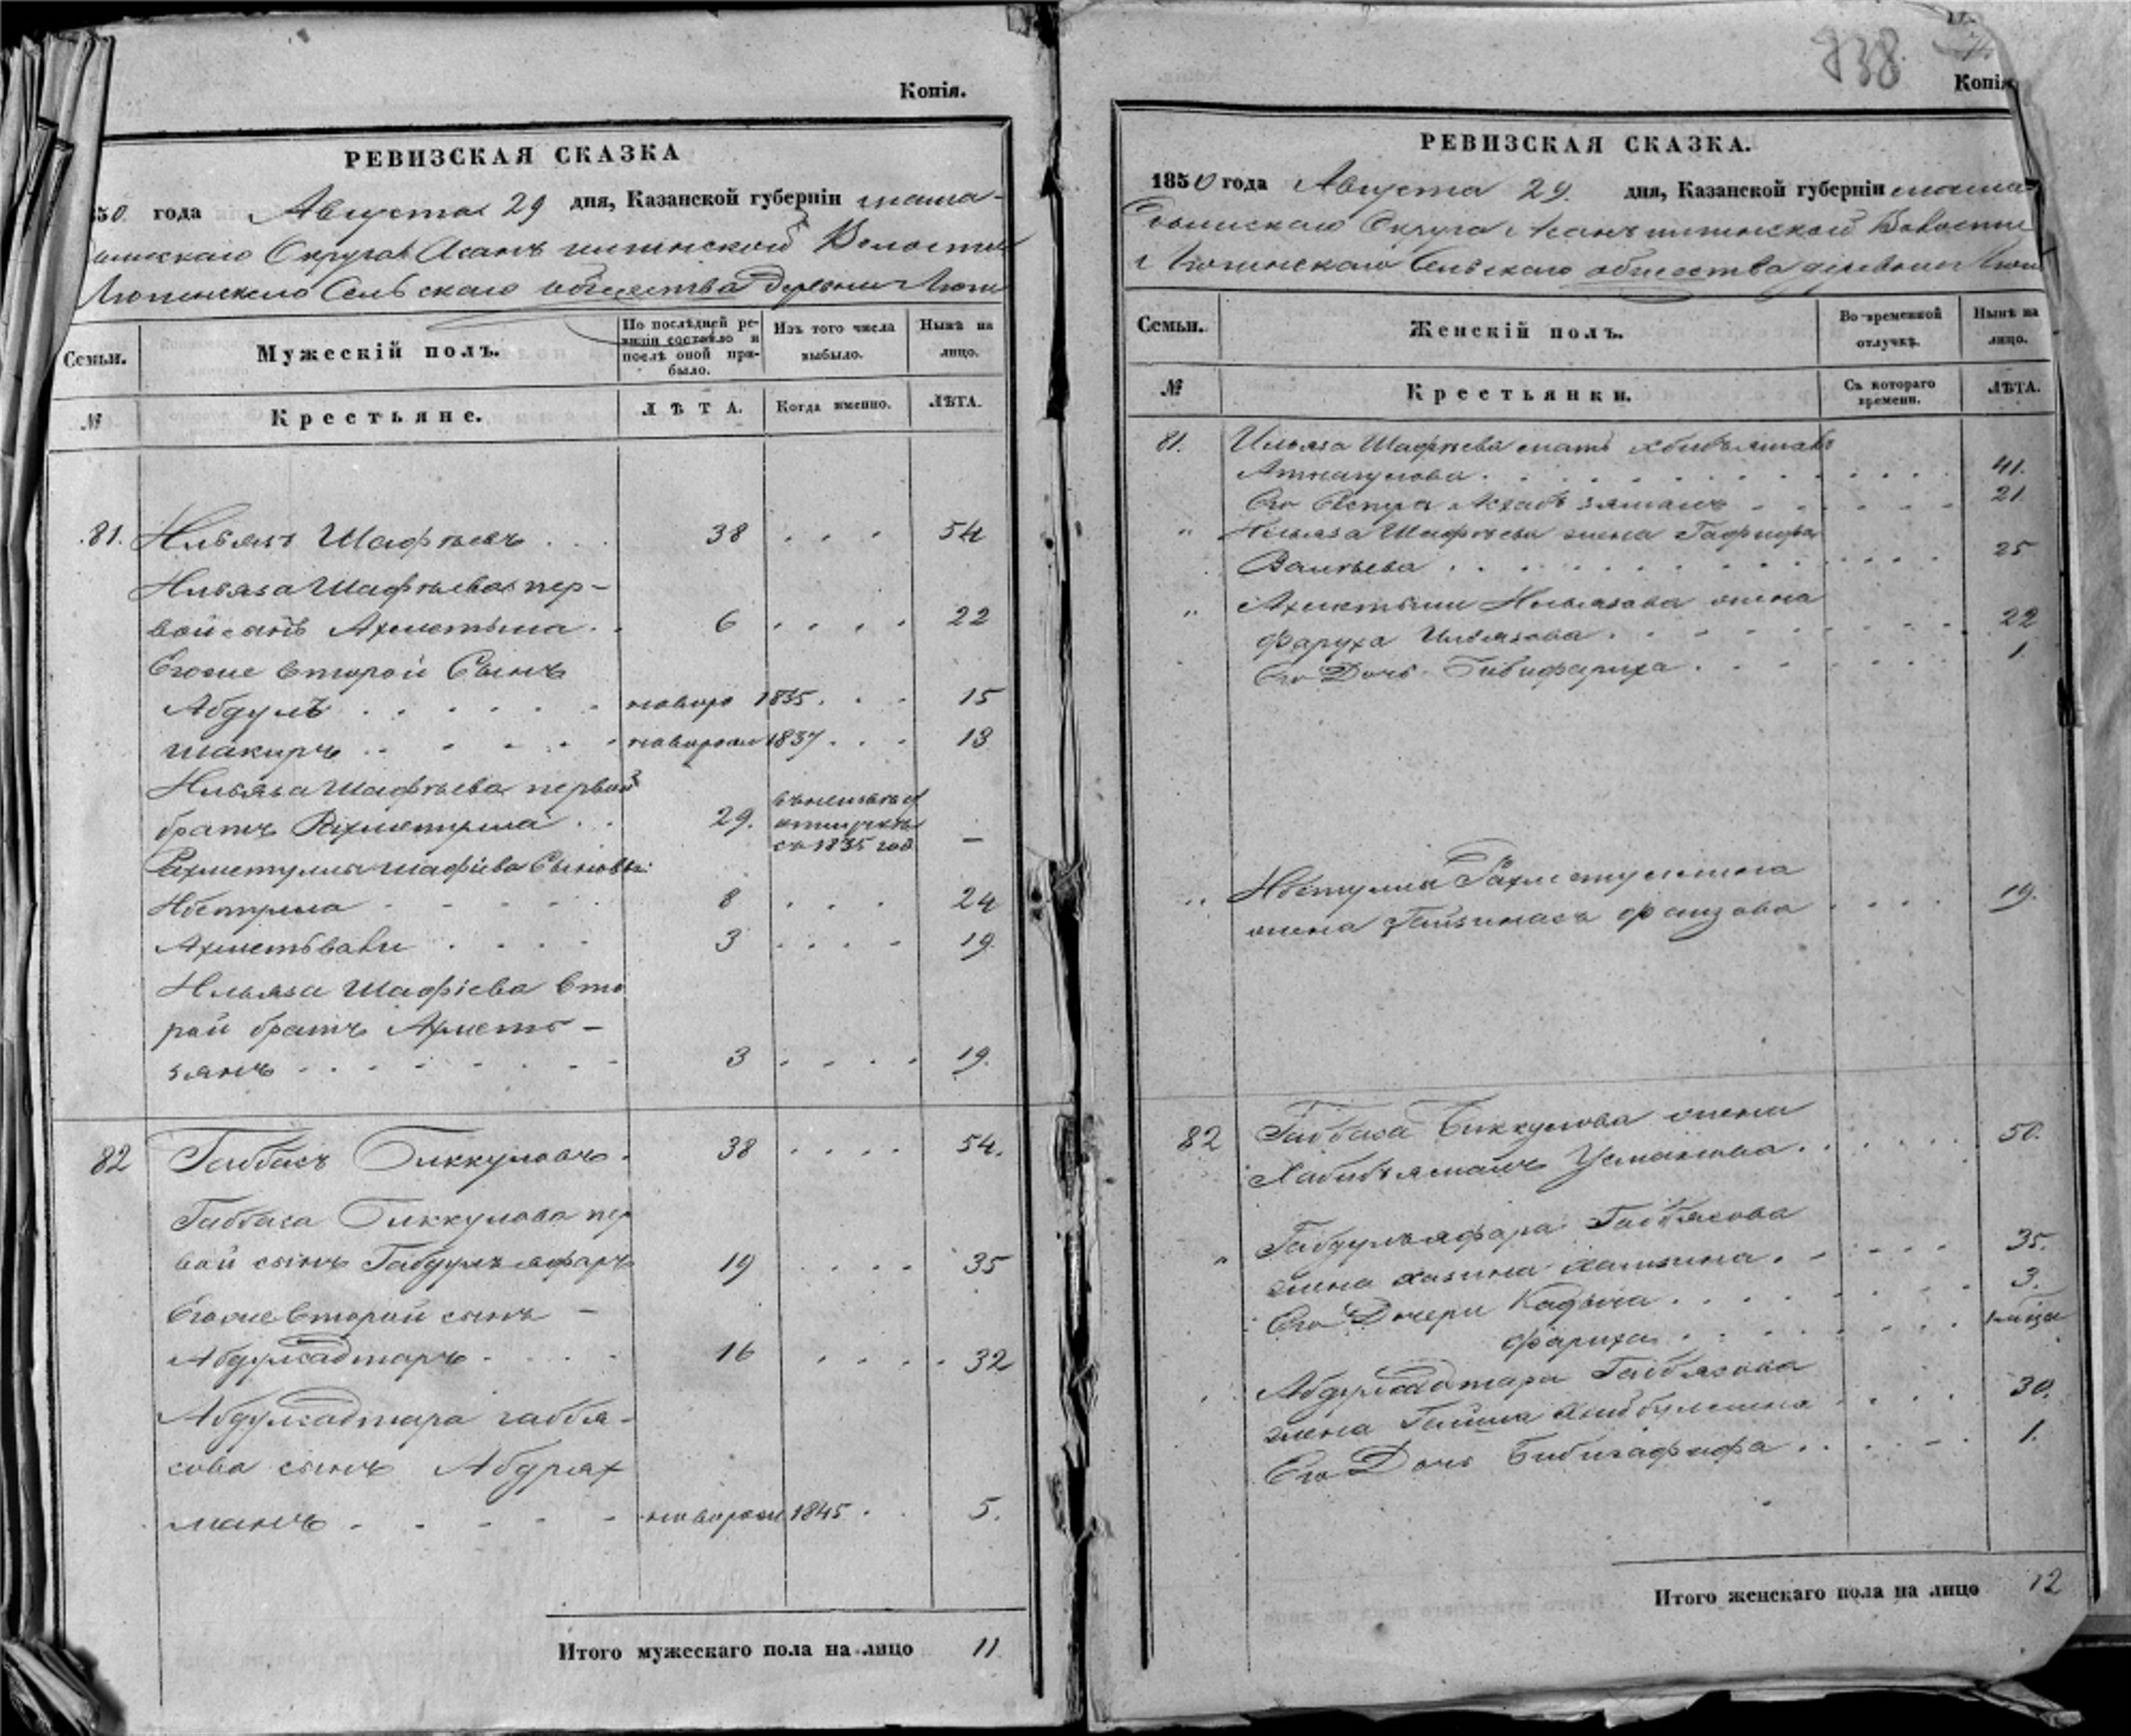 Копія.
РЕВИЗСКАЯ СКАЗКА
50 года Августа 29 дня, Казанской губерніи мама-
дышскаго Округа Асанъ Волости
Сельскаго общества деревни
Семьи.
Мужескій полъ.
По послѣдней ре-
визіи состояло и
послѣ оной при-
было.
Изъ того числа
выбыло.
Нынѣ на
лицо.
№
Крестьяне.
ЛѢТА.
Когда именно.
ЛѢТА.
81. Ильясъ Шафѣевъ 38 54
Ильяса Шафѣева пер-
вой сынъ Ахметьша 6 22
Егоже второй Сынъ
Абдулъ новоро 1835 15
шакиръ новорож 1837 13
Ильяса Шафѣева первый
братъ Рахметулла 29. —
отлучкѣ
съ 1835 год
Рахметуллы шафіева Сыновья:
Ибетулла 8 24
Ахметьвали 3 19
Ильяса Шафіева вто
рой братъ Ахметь-
зянъ 3 19.
82 Габбасъ Биккуловъ 38 54.
Габбаса Биккулова пер
вой сынъ Габдулъяфаръ 19 35
Егоже второй сынъ —
Абдулсадтаръ 16 32
Абдулсадтара габбя-
сова сынъ Абдрях
манъ новорож 1845 5.
Итого мужескаго пола на лицо 11
838
Копія
РЕВИЗСКАЯ СКАЗКА.
1850 года Августа 29. дня, Казанской губерніи мама
дышскаго Округа Асанъ Волости
Сельскаго общества деревни
Семьи.
Женскій полъ.
Во временной
отлучкѣ.
Нынѣ на
лицо.
№
Крестьянки.
Съ котораго
времени.
ЛѢТА.
81. Ильяса Шафѣева мать
Атнагулова 41.
Его Сестра 21
" Ильяса Шафѣева жена
Валѣева 25
" Ахметьши Ильясова жена
Фаруха Ильясова 22
Его Дочь Бибифариха 1
" Ибетулла Рахметуллина
жена Фаизова 19.
82 Габбаса Биккулова жена
Хабибъямалъ Усманова 50.
" Габдулъяфара Габбясова
жена 35.
Его Дочери Кадыча 3.
Фариха
Абдулсадтара Габбясова
жена 30.
Его Дочь Бибигафифа 1.
Итого женскаго пола на лицо 12